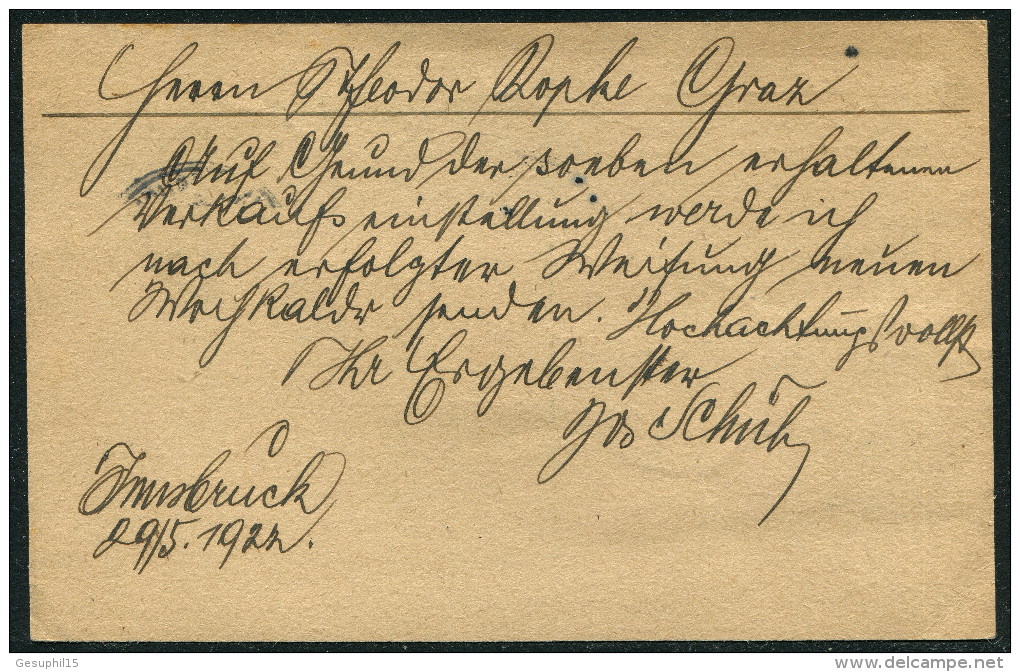 Herrn Theodor Ropke Graz
Auf Grund der soeben erhaltenen
Verkaufseinstellung werde ich
nach erfolgter Weisung neuen
senden. Hochachtungsvollst
Ihr Ergebenster
Jos Schub
Innsbruck
29/5. 1922.
Gesuphil15
www.delcampe.net